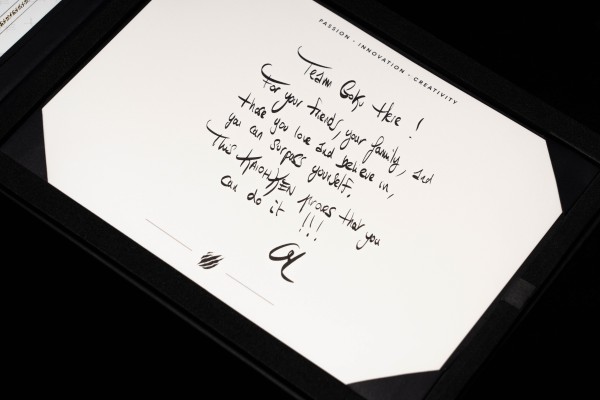 PASSION · INNOVATION · CREATIVITY
Team Goku Here !
For your friends, your family, and
those you love and believe in,
you can surpass yourself.
This KAIOHKEN proves that you
can do it !!!